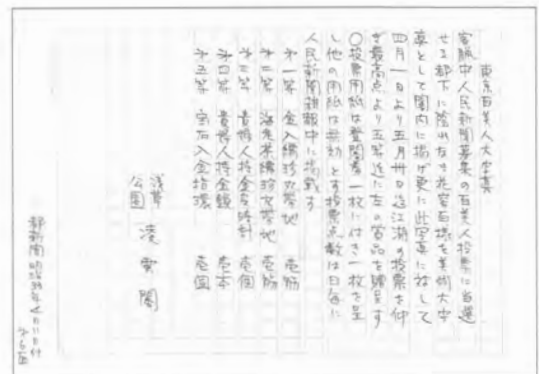 東京百美人大寫真
客臘中人民新聞募集の百美人投票に当選
せる都下に隠れなき花容百様を美術大寫
真として閣内に掲げ更に此写真に於して
四月一日より五月卅日迄江湖の投票を仰
ぎ最高点より五等迄に左の賞品を贈呈す
○投票用紙は登閣者一枚に付き一枚を呈
し他の用紙は無効とす投票点数は日毎に
人民新聞雑報中に掲載す
第一等 金入繻珍丸帯地 壱筋
第二等 繻珍丸帯地 壱筋
第三等 貴婦人持金側時計 壱個
第四等 貴婦人持金鎖 壱本
第五等 宝石入金指環 壱個
浅草
公園 凌雲閣
都新聞 明治39年4月11日付